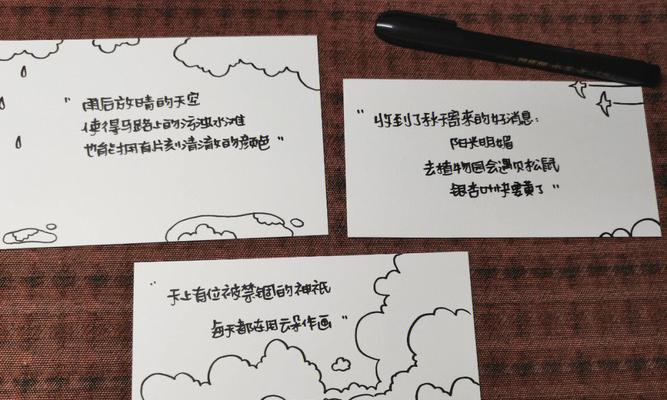 "雨后放晴的天空
使得马路上的污浊水滩
也能拥有片刻清澈的颜色"
"收到了秋天寄来的好消息:
阳光明媚
去植物园会遇见松鼠
银杏叶快要黄了"
"天上有位被禁锢的神祇
每天都在用云朵作画"